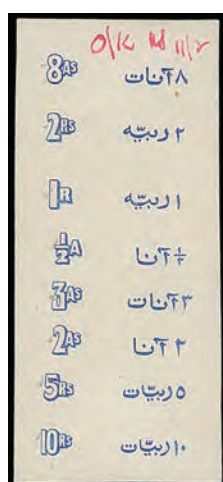 O/K 11/2
8AS ٨ آنات
2RS ٢ ربيّه
1R ١ ربيّه
½A ½ آنا
3AS ٣ آنات
2AS ٢ آنا
5RS ٥ ربيّات
10RS ١٠ ربيّات